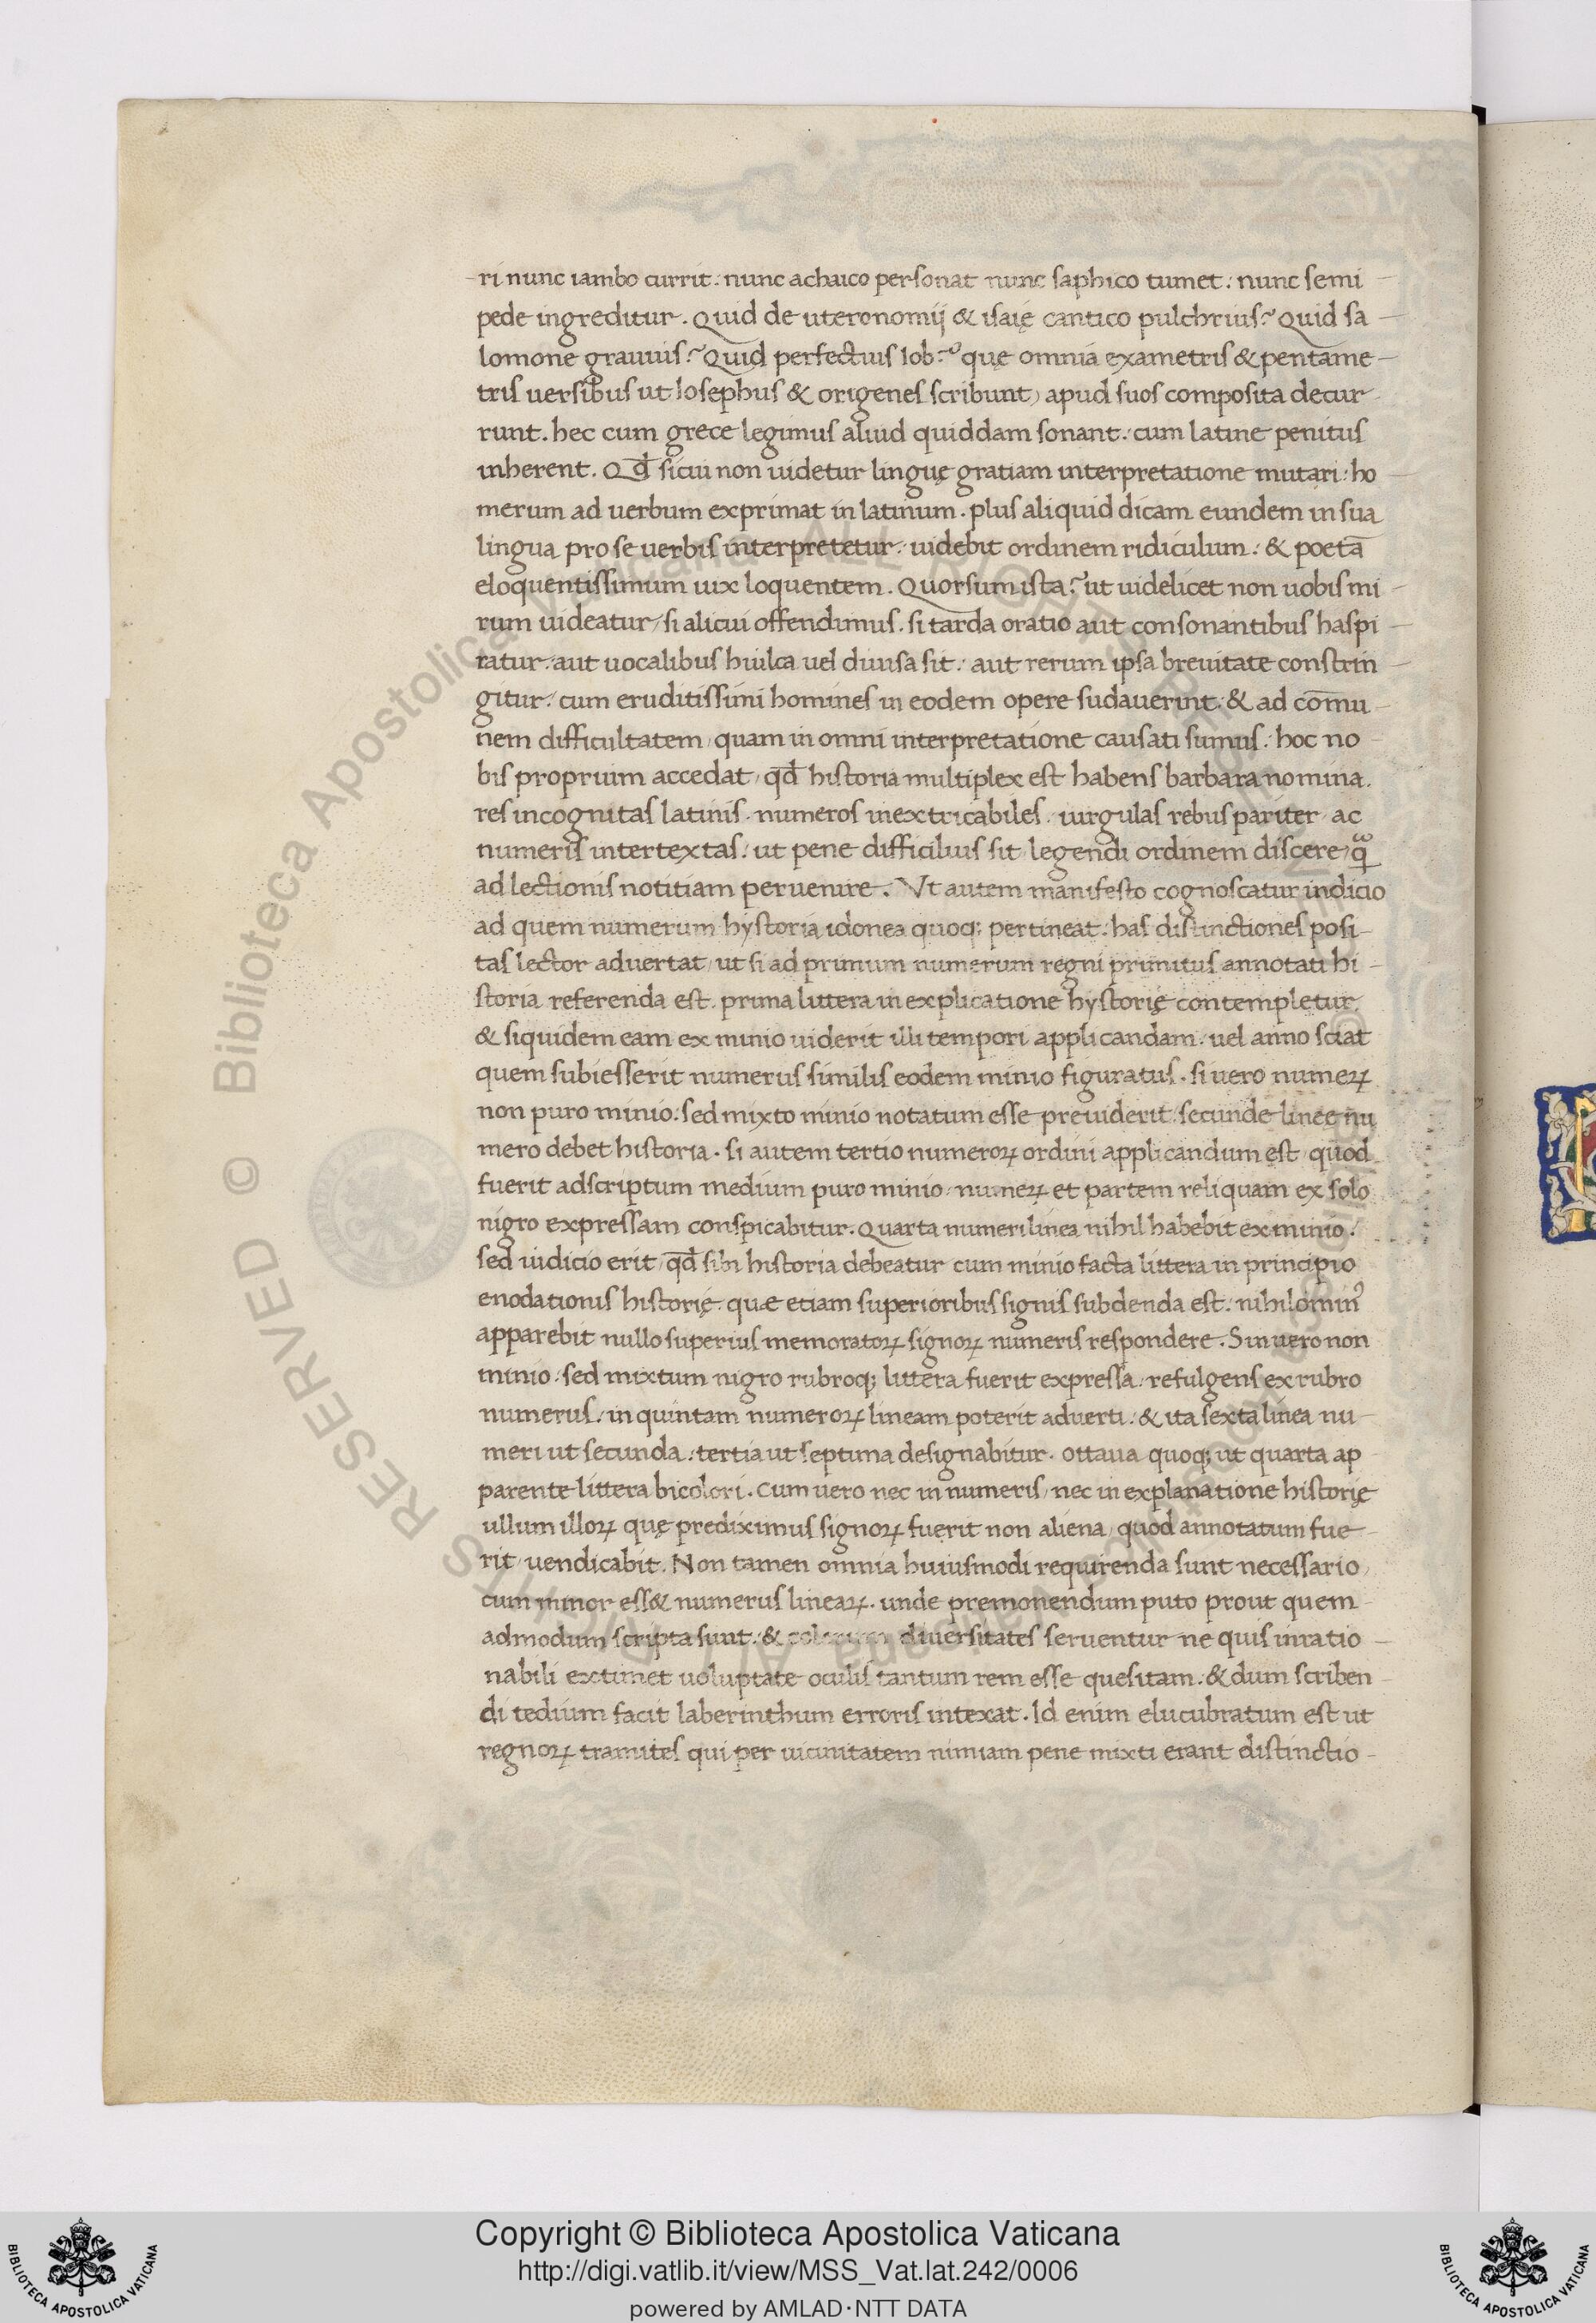 ri nunc iambo currit: nunc achaico personat nunc saphico tumet: nunc semi
pede ingreditur. Quid de uteronomij & isaię cantico pulchrius? Quid sa
lomone grauius? Quid perfectius Iob? quę omnia exametris & pentame-
tris uersibus ut Iosephus & origenes scribunt, apud suos composita decur
runt. hec cum grece legimus aliud quiddam sonant: cum latine penitus
inherent. Qd̄ sicui non uidetur linguę gratiam interpretatione mutari: ho
merum ad uerbum exprimat in latinum. plus aliquid dicam eundem in sua
lingua prose uerbis interpretetur: uidebit ordinem ridiculum: & poetā
eloquentissimum uix loquentem. Quorsum ista? ut uidelicet non uobis mi
rum uideatur, si alicui offendimus. si tarda oratio aut consonantibus haspi
ratur: aut uocalibus hiulca uel diuisa sit: aut rerum ipsa breuitate constrin
gitur: cum eruditissimi homines in eodem opere sudauerint: & ad cōmu
nem difficultatem, quam in omni interpretatione causati sumus: hoc no
bis proprium accedat, qd̄ historia multiplex est habens barbara nomina.
res incognitas latinis. numeros inextricabiles. iurgulas rebus pariter ac
numeris intertextas: ut pene difficilius sit legendi ordinem discere, q̃
ad lectionis notitiam peruenire. Vt autem manifesto cognoscatur indicio
ad quem numerum hystoria idonea quoq; pertineat: has distinctiones posi-
tas lector aduertat, ut si ad primum numerum regni primitus annotati hi
storia referenda est. prima littera in explicatione hystorię contempletur,
& siquidem eam ex minio uiderit illi tempori applicandam: uel anno sciat
quem subiesserit numerus similis eodem minio figuratus. si uero numeꝝ
non puro minio: sed mixto minio notatum esse preuiderit: secunde lineę nu
mero debet historia. si autem tertio numeroꝝ ordini applicandum est, quod
fuerit adscriptum medium puro minio, numeꝝ et partem reliquam ex solo
nigro expressam conspicabitur. Quarta numeri linea nihil habebit ex minio:
sed iudicio erit, qd̄ sibi historia debeatur cum minio facta littera in principio
enodationis historię. quæ etiam superioribus signis subdenda est: nihilomin⁹
apparebit nullo superius memoratoꝝ signoꝝ numeris respondere. Sin uero non
minio: sed mixtum nigro rubroq; littera fuerit expressa: refulgens ex rubro
numerus: in quintam numeroꝝ lineam poterit aduerti: & ita sexta linea nu
meri ut secunda: tertia ut septima designabitur. ottaua quoq; ut quarta ap
parente littera bicolori. Cum uero nec in numeris, nec in explanatione historię
ullum illoꝝ quę prediximus signoꝝ fuerit non aliena, quod annotatum fue
rit, uendicabit. Non tamen omnia huiusmodi requirenda sunt necessario,
cum minor ess& numerus lineaꝝ. unde premonendum puto prout quem
admodum scripta sunt: & colorum diuersitates seruentur ne quis inratio
nabili extimet uoluptate oculis tantum rem esse quesitam: & dum scriben
di tedium facit laberinthum erroris intexat. Id enim elucubratum est ut
regnoꝝ tramites qui per uicinitatem nimiam pene mixti erant distinctio-
© Biblioteca Apostolica Vaticana ALL RIGHTS RESERVED
Copyright © Biblioteca Apostolica Vaticana
http://digi.vatlib.it/view/MSS_Vat.lat.242/0006
powered by AMLAD·NTT DATA
BIBLIOTECA APOSTOLICA VATICANA
BIBLIOTECA APOSTOLICA VATICANA